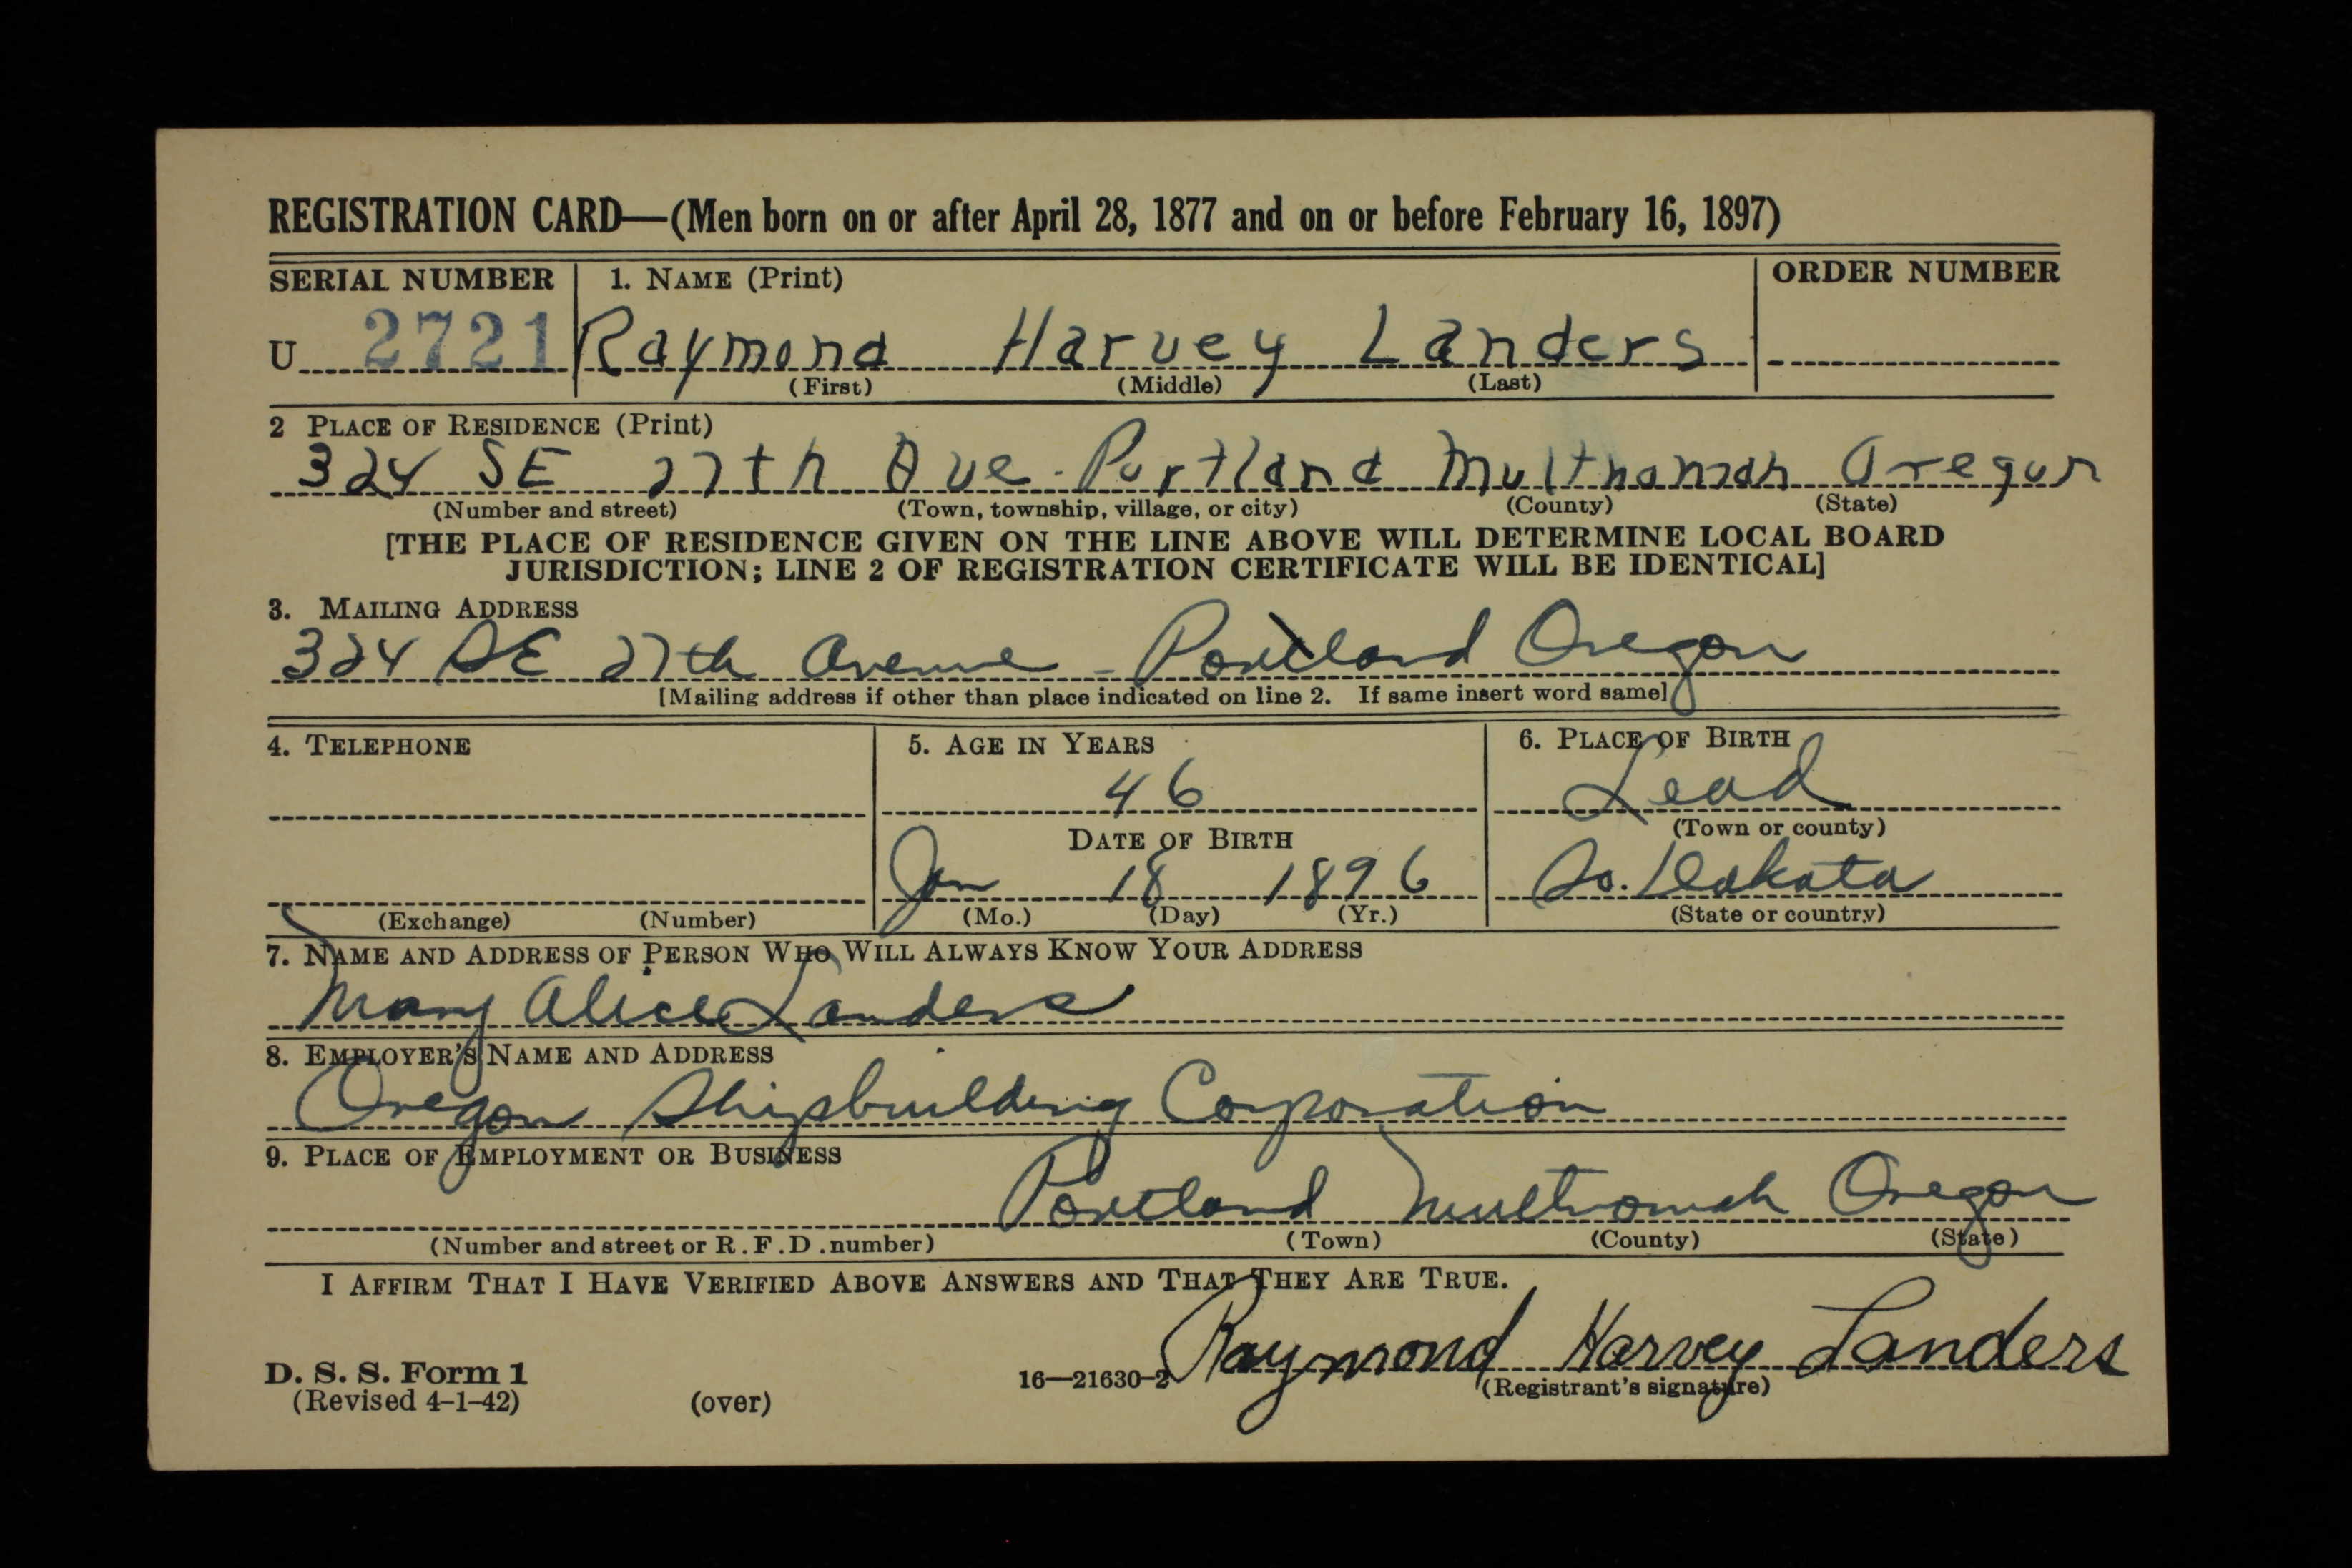 REGISTRATION CARD—(Men born on or after April 28, 1877 and on or before February 16, 1897)
SERIAL NUMBER 1. NAME (Print) ORDER NUMBER
U 2721 Raymond Harvey Landers
(First) (Middle) (Last)
2 PLACE OF RESIDENCE (Print)
324 SE 27th Ave. Portland Multnomah Oregon
(Number and street) (Town, township, village, or city) (County) (State)
[THE PLACE OF RESIDENCE GIVEN ON THE LINE ABOVE WILL DETERMINE LOCAL BOARD
JURISDICTION; LINE 2 OF REGISTRATION CERTIFICATE WILL BE IDENTICAL]
3. MAILING ADDRESS
324 SE 27th Avenue - Portland Oregon
[Mailing address if other than place indicated on line 2. If same insert word same]
4. TELEPHONE 5. AGE IN YEARS 6. PLACE OF BIRTH
46 Lead
DATE OF BIRTH (Town or county)
Jan 18 1896 So. Dakota
(Exchange) (Number) (Mo.) (Day) (Yr.) (State or country)
7. NAME AND ADDRESS OF PERSON WHO WILL ALWAYS KNOW YOUR ADDRESS
Mary Alice Landers
8. EMPLOYER'S NAME AND ADDRESS
Oregon Shipbuilding Corporation
9. PLACE OF EMPLOYMENT OR BUSINESS
Portland Multnomah Oregon
(Number and street or R.F.D. number) (Town) (County) (State)
I AFFIRM THAT I HAVE VERIFIED ABOVE ANSWERS AND THAT THEY ARE TRUE.
Raymond Harvey Landers
D. S. S. Form 1 16—21630-2 (Registrant's signature)
(Revised 4-1-42) (over)